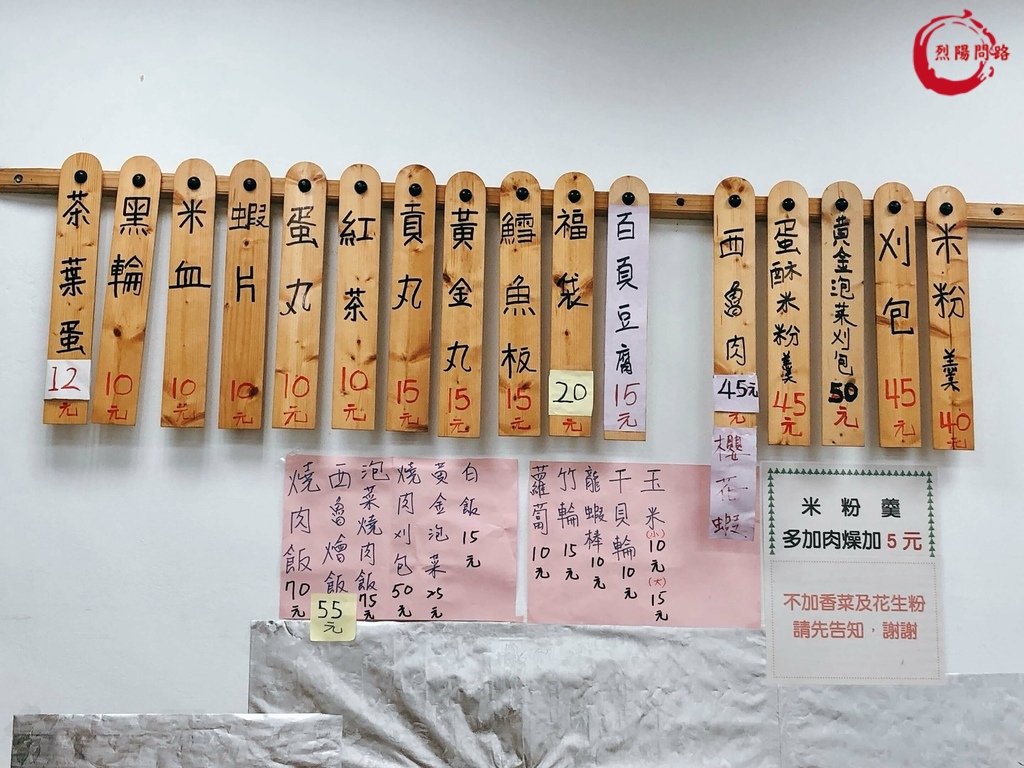 烈陽問路
米粉羹 40元
刈包 45元
黃金泡菜刈包 50元
蛋酥米粉羹 45元
西魯肉 45元 元
櫻花蝦
百頁豆腐 15元
福袋 20 元
鱈魚板 15元
黃金丸 15元
貢丸 15元
紅茶 10元
蛋丸 10元
蝦片 10元
米血 10元
黑輪 10元
茶葉蛋 12 元
玉米 (小) 10元 (大) 15元
干貝輪 10元
龍蝦棒 10元
竹輪 15元
蘿蔔 10元
白飯 15元
黃金泡菜 25元
燒肉刈包 50元
泡菜燒肉飯 75元
西魯燴飯 55元
燒肉飯 70元
米粉羹
多加肉燥加 5 元
不加香菜及花生粉
請先告知，謝謝